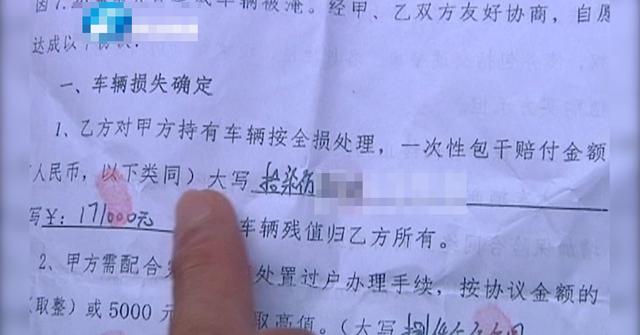 因7.
车辆被淹。经甲、乙双方友好协商，自愿
达成以下协议：
一、车辆损失确定
1、乙方对甲方持有车辆按全损处理，一次性包干赔付金额
人民币，以下类同）大写 拾柒万
写￥：171000元 车辆残值归乙方所有。
2、甲方需配合 处置过户办理手续，按协议金额的
（取整）或5000元 取高值。（大写